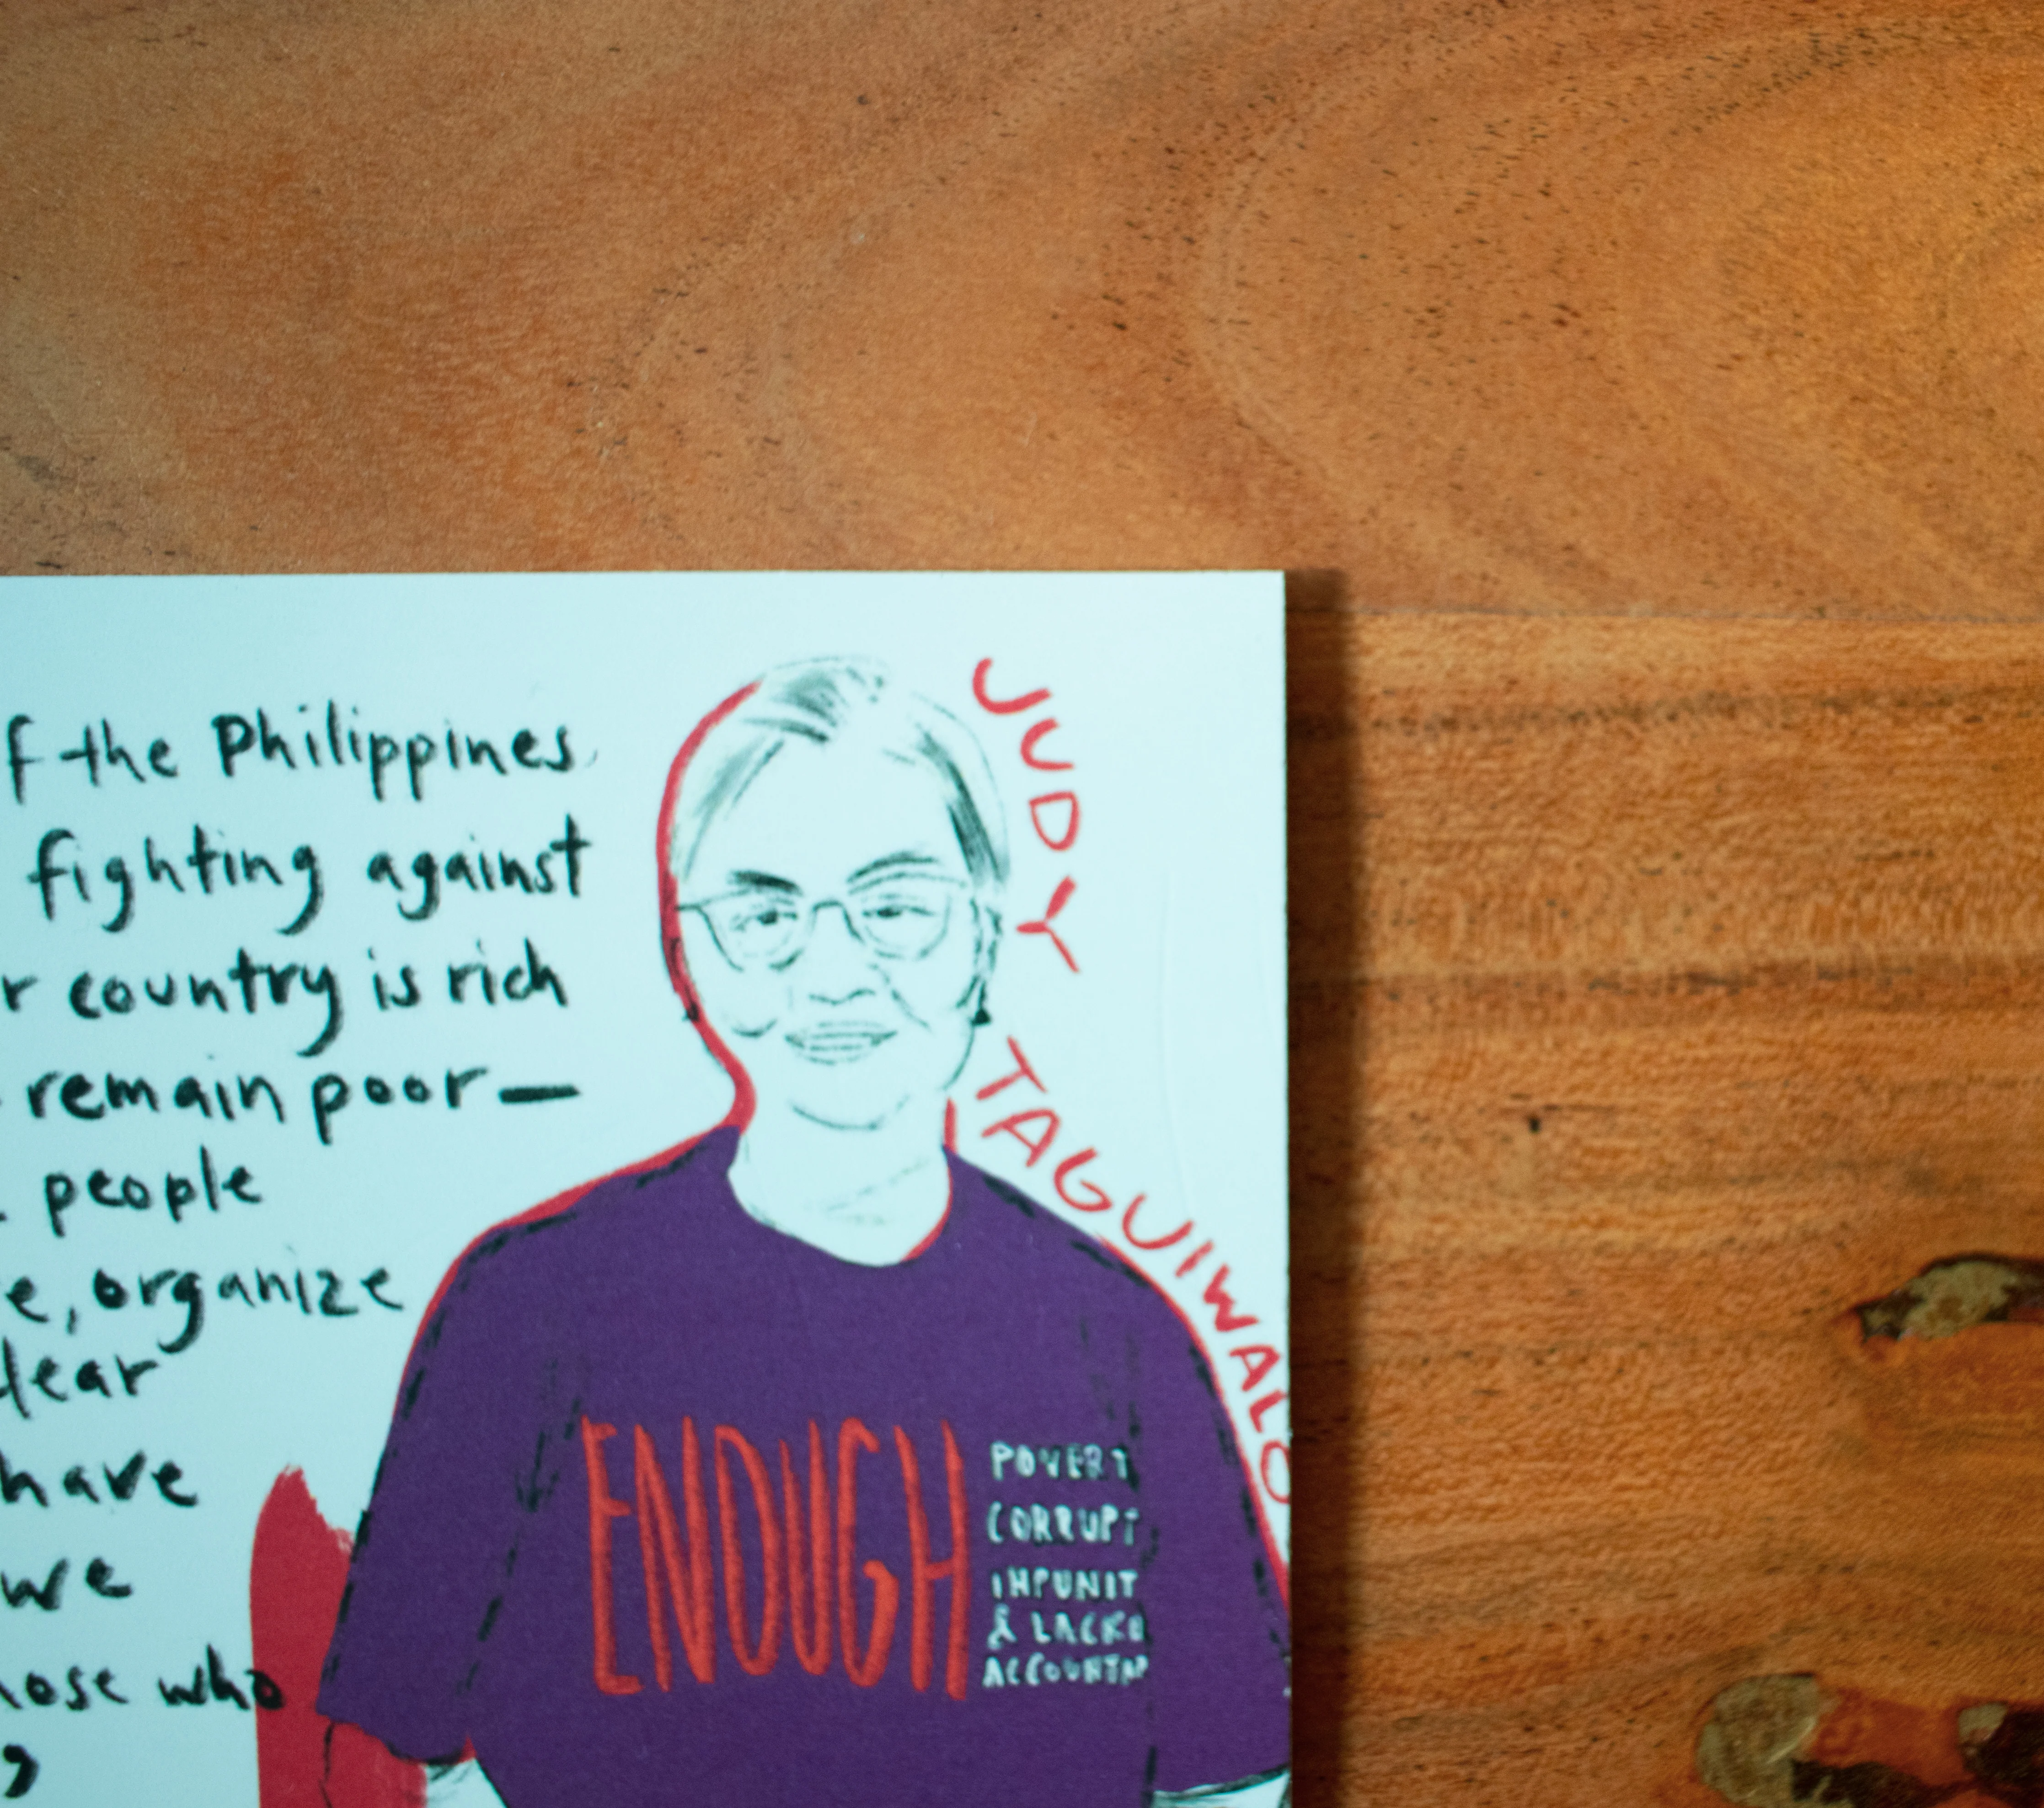 f the Philippines
fighting against
r country is rich
remain poor—
people
e, organize
lear
have
we
hose who
JUDY
TAGUIWALO
ENOUGH
POVERT
CORRUPT
IMPUNIT
& LACK O
ACCOUNTAB